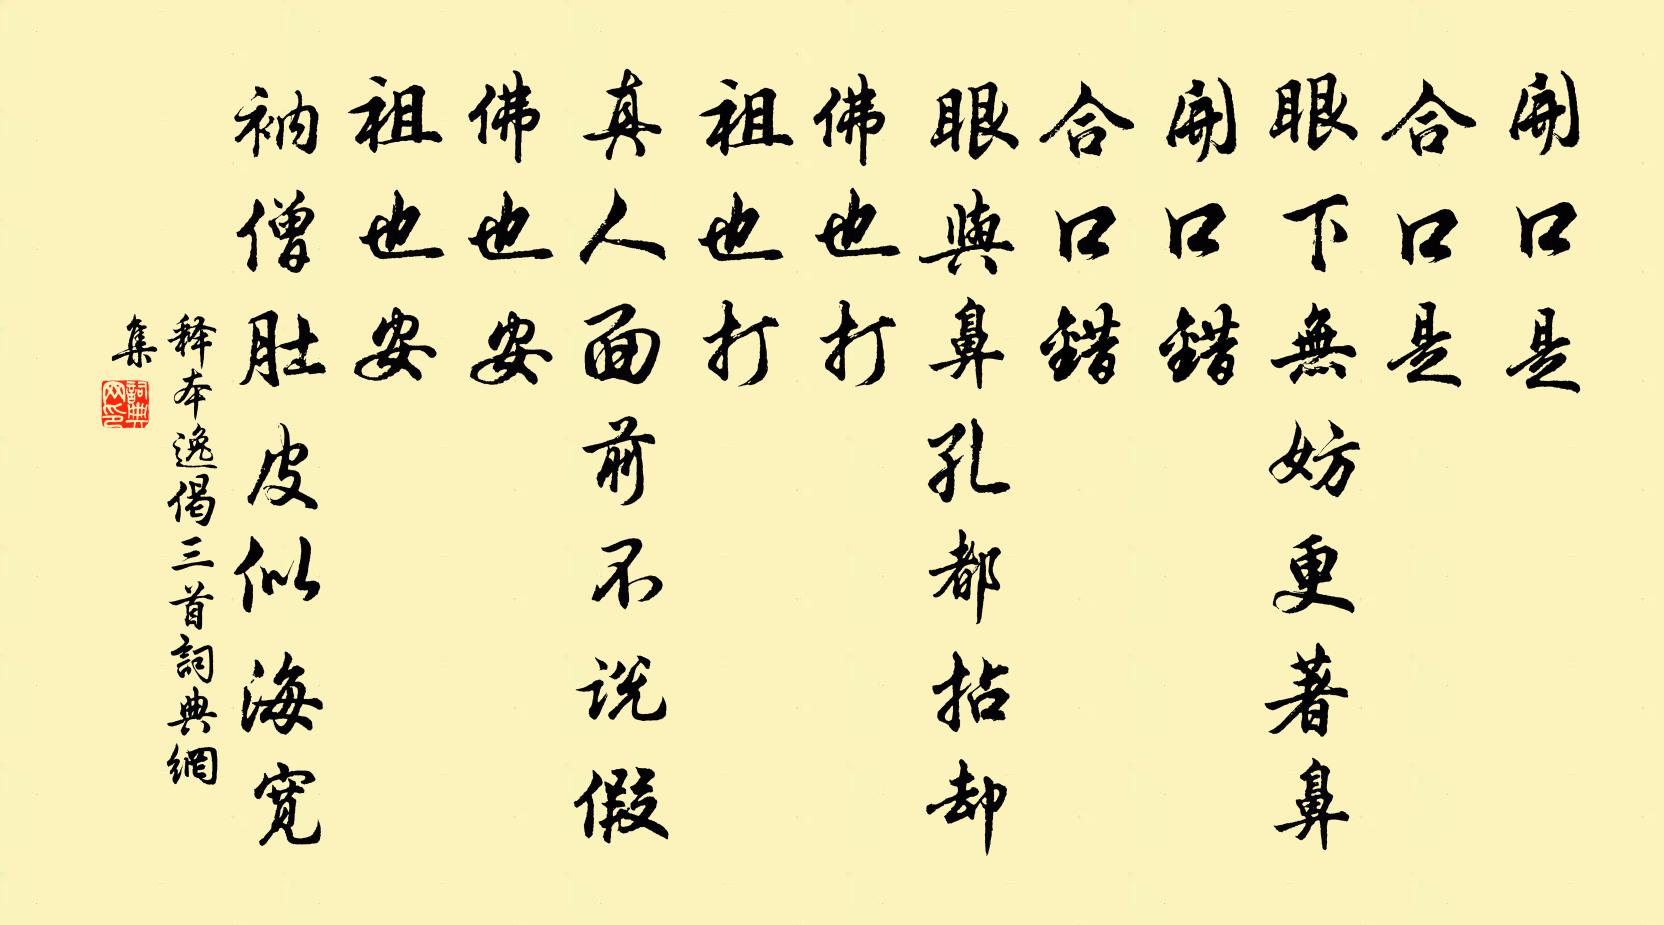 開口是
合口是
眼下無妨更著鼻
開口錯
合口錯
眼與鼻孔都拈却
佛也打
祖也打
真人面前不说假
佛也安
祖也安
衲僧肚皮似海宽
释本逸偈三首詞典網
集
詞典